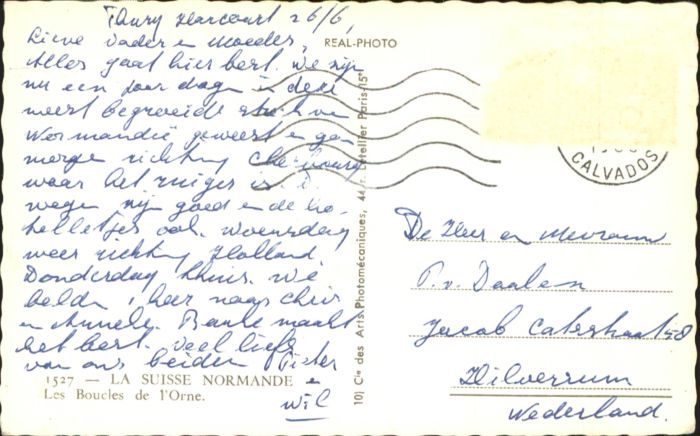 Thury Harcourt 26/6
Lieve Vader en Moeder,
Alles gaat hier best. We zijn
nu een paar dagen in deze
meest begroeide streek van
Normandië geweest en gaan
morgen richting Cherbourg
waar het ruiger is. De
wegen zijn goed en de ho-
telletjes ook. Woensdag
weer richting Holland.
Donderdag thuis. We
belden naar
en Anneke. maakt
het best. Veel liefs
van ons beiden Pieter
en
Wil
1527 — LA SUISSE NORMANDE
Les Boucles de l'Orne.
REAL-PHOTO
10) Cie des Arts Photomécaniques, 44, r. Letellier Paris-15e
CALVADOS
De Heer en Mevrouw
P. v. Daalen
Jacob Catsstraat 58
Hilversum
Nederland.